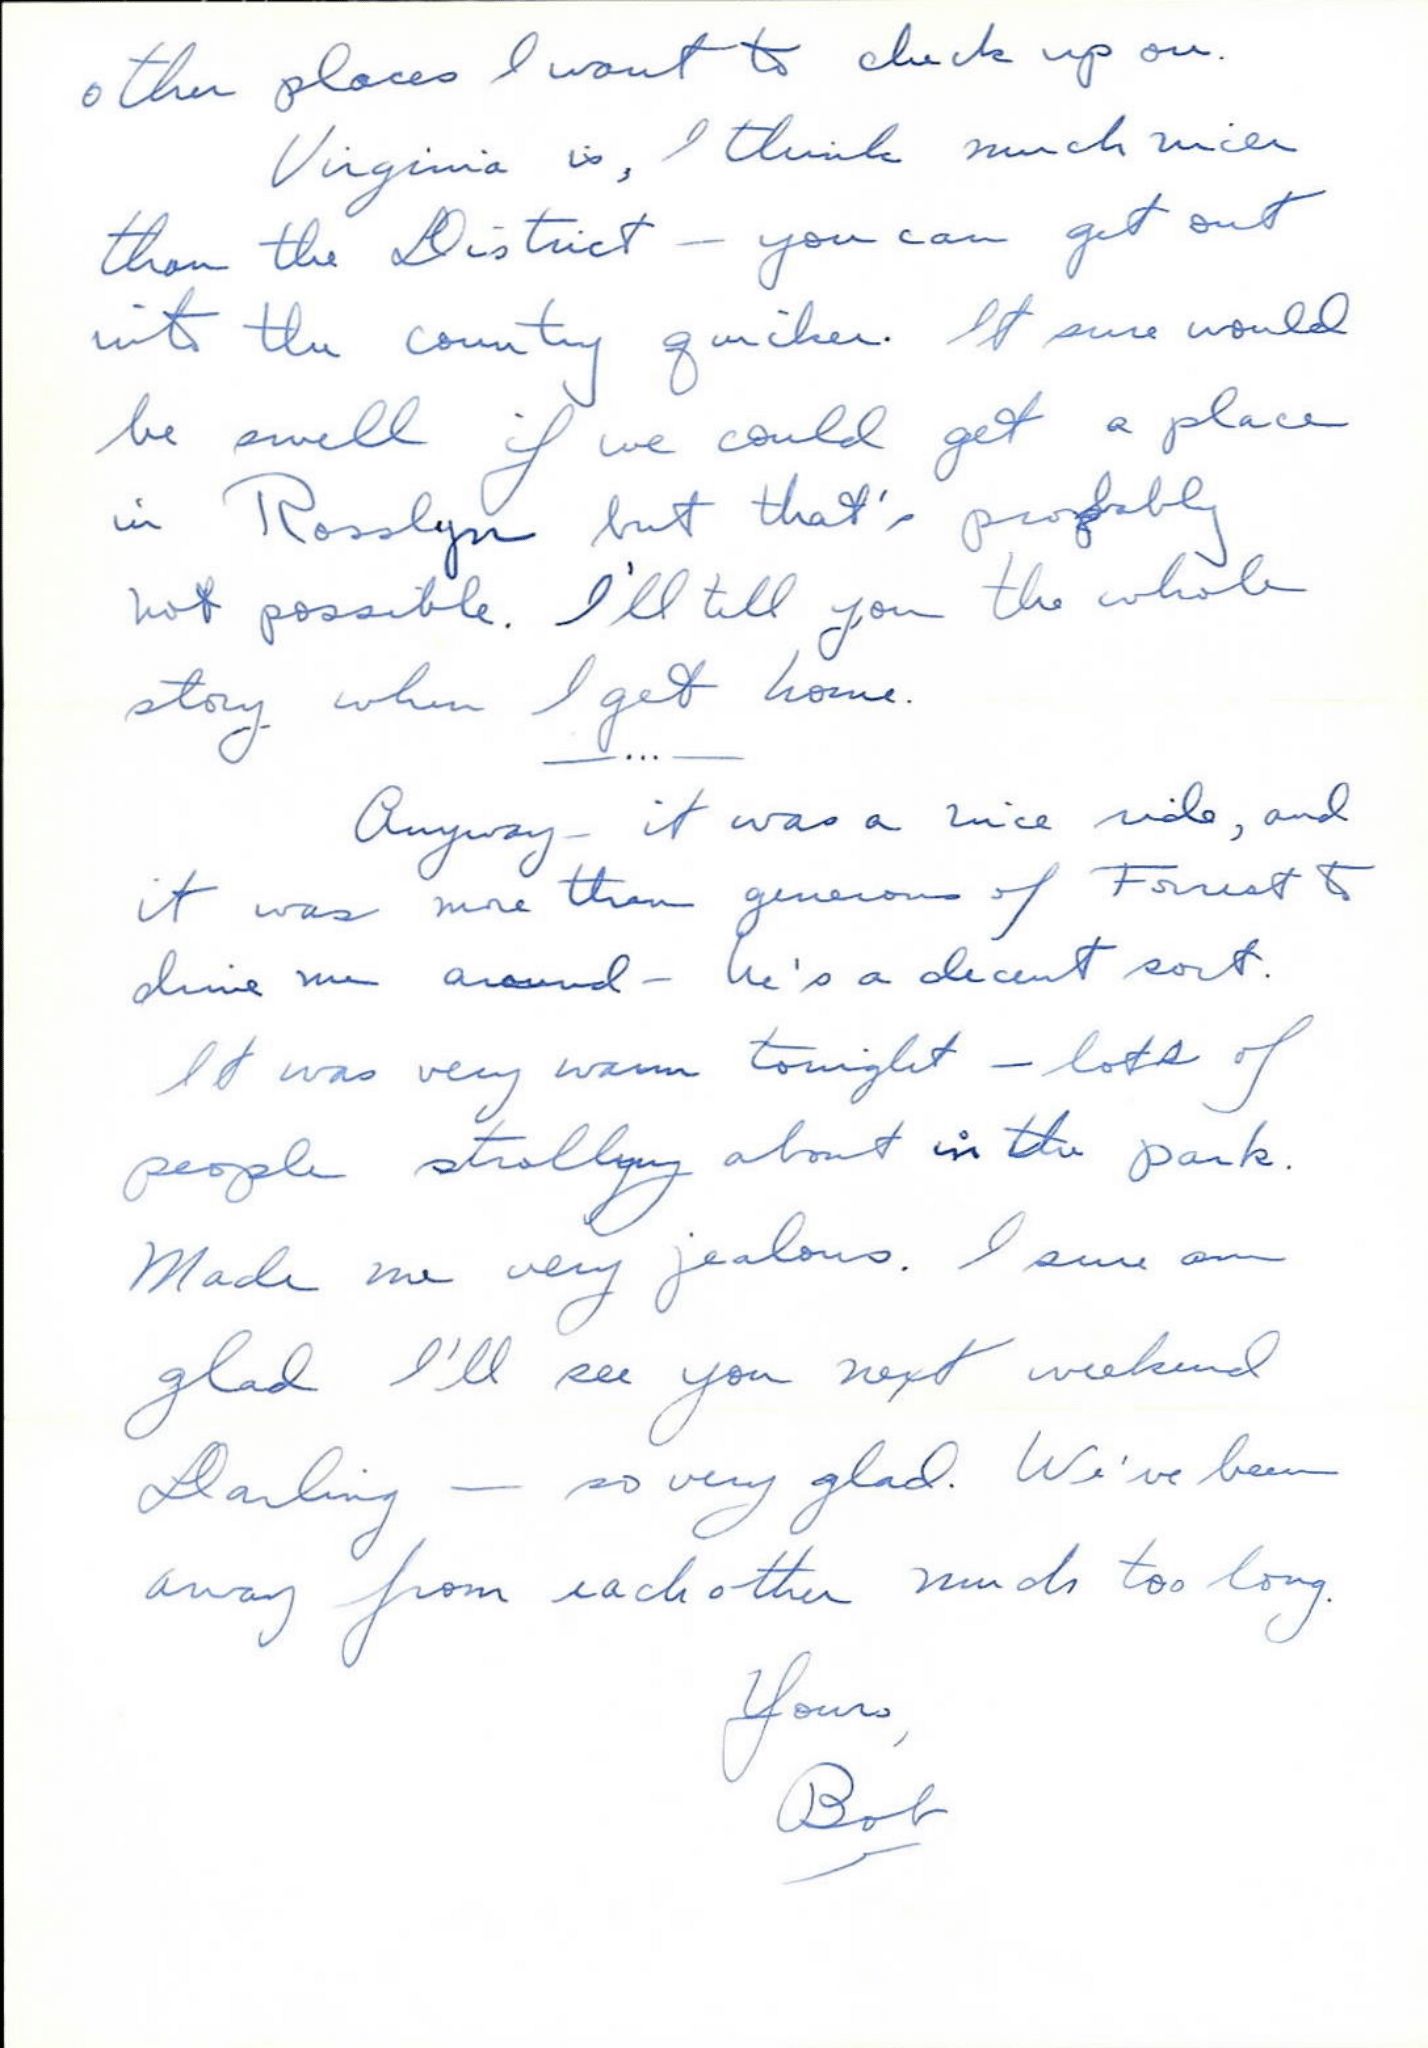 other places I want to check up on.
Virginia is, I think much nicer
than the District — you can get out
into the country quicker. It sure would
be swell if we could get a place
in Rosslyn but that's probably
not possible. I'll tell you the whole
story when I get home.
—...—
Anyway – it was a nice ride, and
it was more than generous of Forrest to
drive me around – he's a decent sort.
It was very warm tonight – lots of
people strolling about in the park.
Made me very jealous. I sure am
glad I'll see you next weekend
Darling — so very glad. We've been
away from each other much too long.
Yours,
Bob